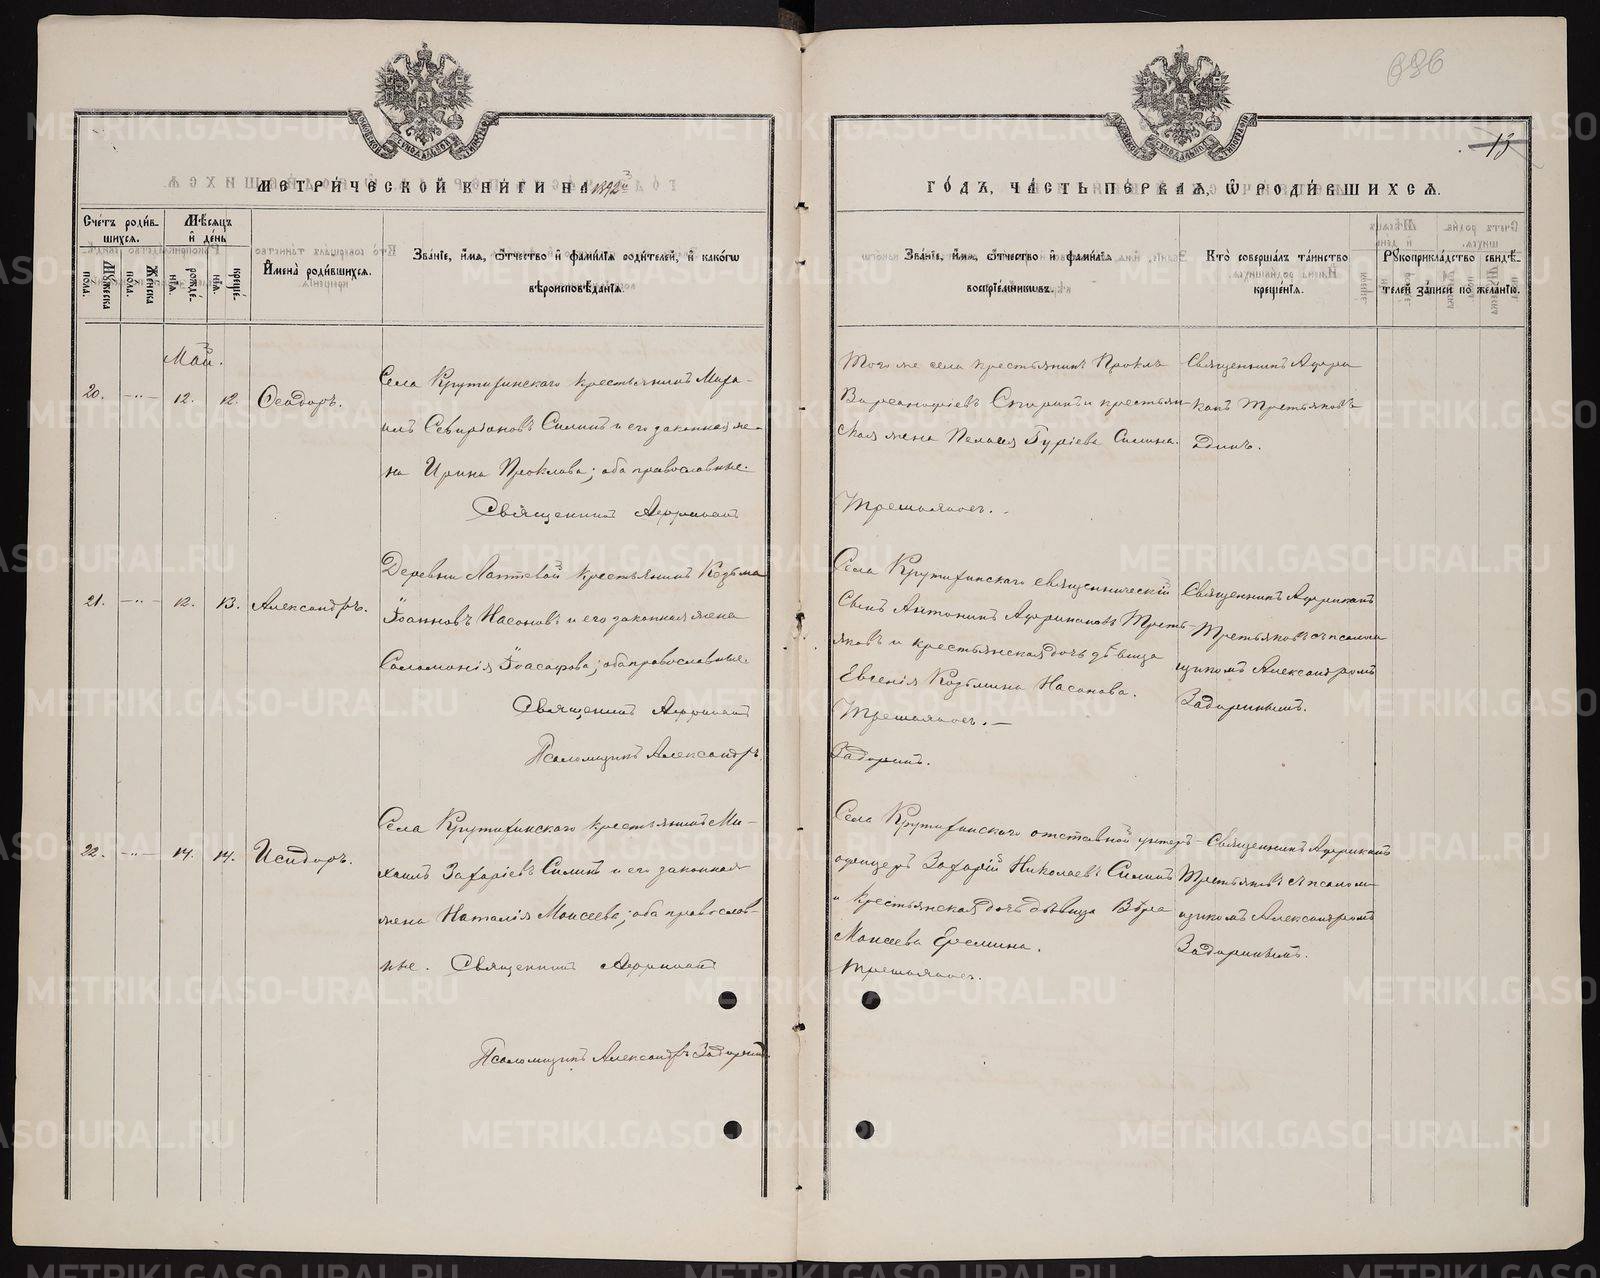 636
13
МЕТРИ́ЧЕСКОЙ КНИГИ НА 1892 ГО́ДЪ, ЧА́СТЬ ПЕ́РВАѦ, Ѡ РОДИ́ВШИХСѦ.
Сче́тъ роди́в-
шихсѧ.
Му́жеска пола.
Же́нска пола.
Мѣ́сѧцъ
и҆ де́нь
рожде́-
нїѧ.
креще́-
нїѧ.
И҆мена̀ роди́вшихсѧ.
Зва́нїе, и҆́мѧ, ѻ҆́тчество и҆ фами́лїѧ роди́телей, и҆ како́гѡ
вѣроисповѣ́данїѧ.
Зва́нїе, и҆́мѧ, ѻ҆́тчество и҆ фами́лїѧ
воспрїе́мникѡвъ.
Кто̀ соверша́лъ та́инство
креще́нїѧ.
Рꙋкоприкла́дство свидѣ́-
телей за́писи по жела́нїю.
Май.
20. —„— 12. 12. Ѳеодоръ.
Села Крутихинскаго крестьянинъ Миха-
илъ Севиріановъ Силинъ и его законная же-
на Ирина Проклова; оба православные.
Священникъ Африканъ
Того же села крестьянинъ Проклъ
Варсанофіевъ и крестьян-
ская жена Пелагія Гуріева Силина.
Третьяковъ.
Священникъ Афри-
канъ Третьяковъ
Одинъ.
21. —„— 12. 13. Александръ.
Деревни Лаптевой крестьянинъ Козьма
Іоанновъ Насоновъ и его законная жена
Соломонія Іоасафова; оба православные.
Священникъ Африканъ
Псаломщикъ Александръ
Села Крутихинскаго священническій
сынъ Антонинъ Африкановъ Треть-
яковъ и крестьянская дочь дѣвица
Евгенія Козьмина Насонова.
Третьяковъ.—
Задоринъ.
Священникъ Африканъ
Третьяковъ съ псалом-
щикомъ Александромъ
Задоринымъ.
22. —„— 14. 14. Исидоръ.
Села Крутихинскаго крестьянинъ Ми-
хаилъ Захаріевъ Силинъ и его законная
жена Наталія Моисеева; оба православ-
ные. Священникъ Африканъ
Псаломщикъ Александръ Задоринъ.
Села Крутихинскаго отставной унтеръ-
офицеръ Захарій Николаевъ Силинъ
и крестьянская дочь дѣвица Вѣра
Моисеева Еремина.
Третьяковъ.
Священникъ Африканъ
Третьяковъ съ псалом-
щикомъ Александромъ
Задоринымъ.
METRIKI.GASO-URAL.RU